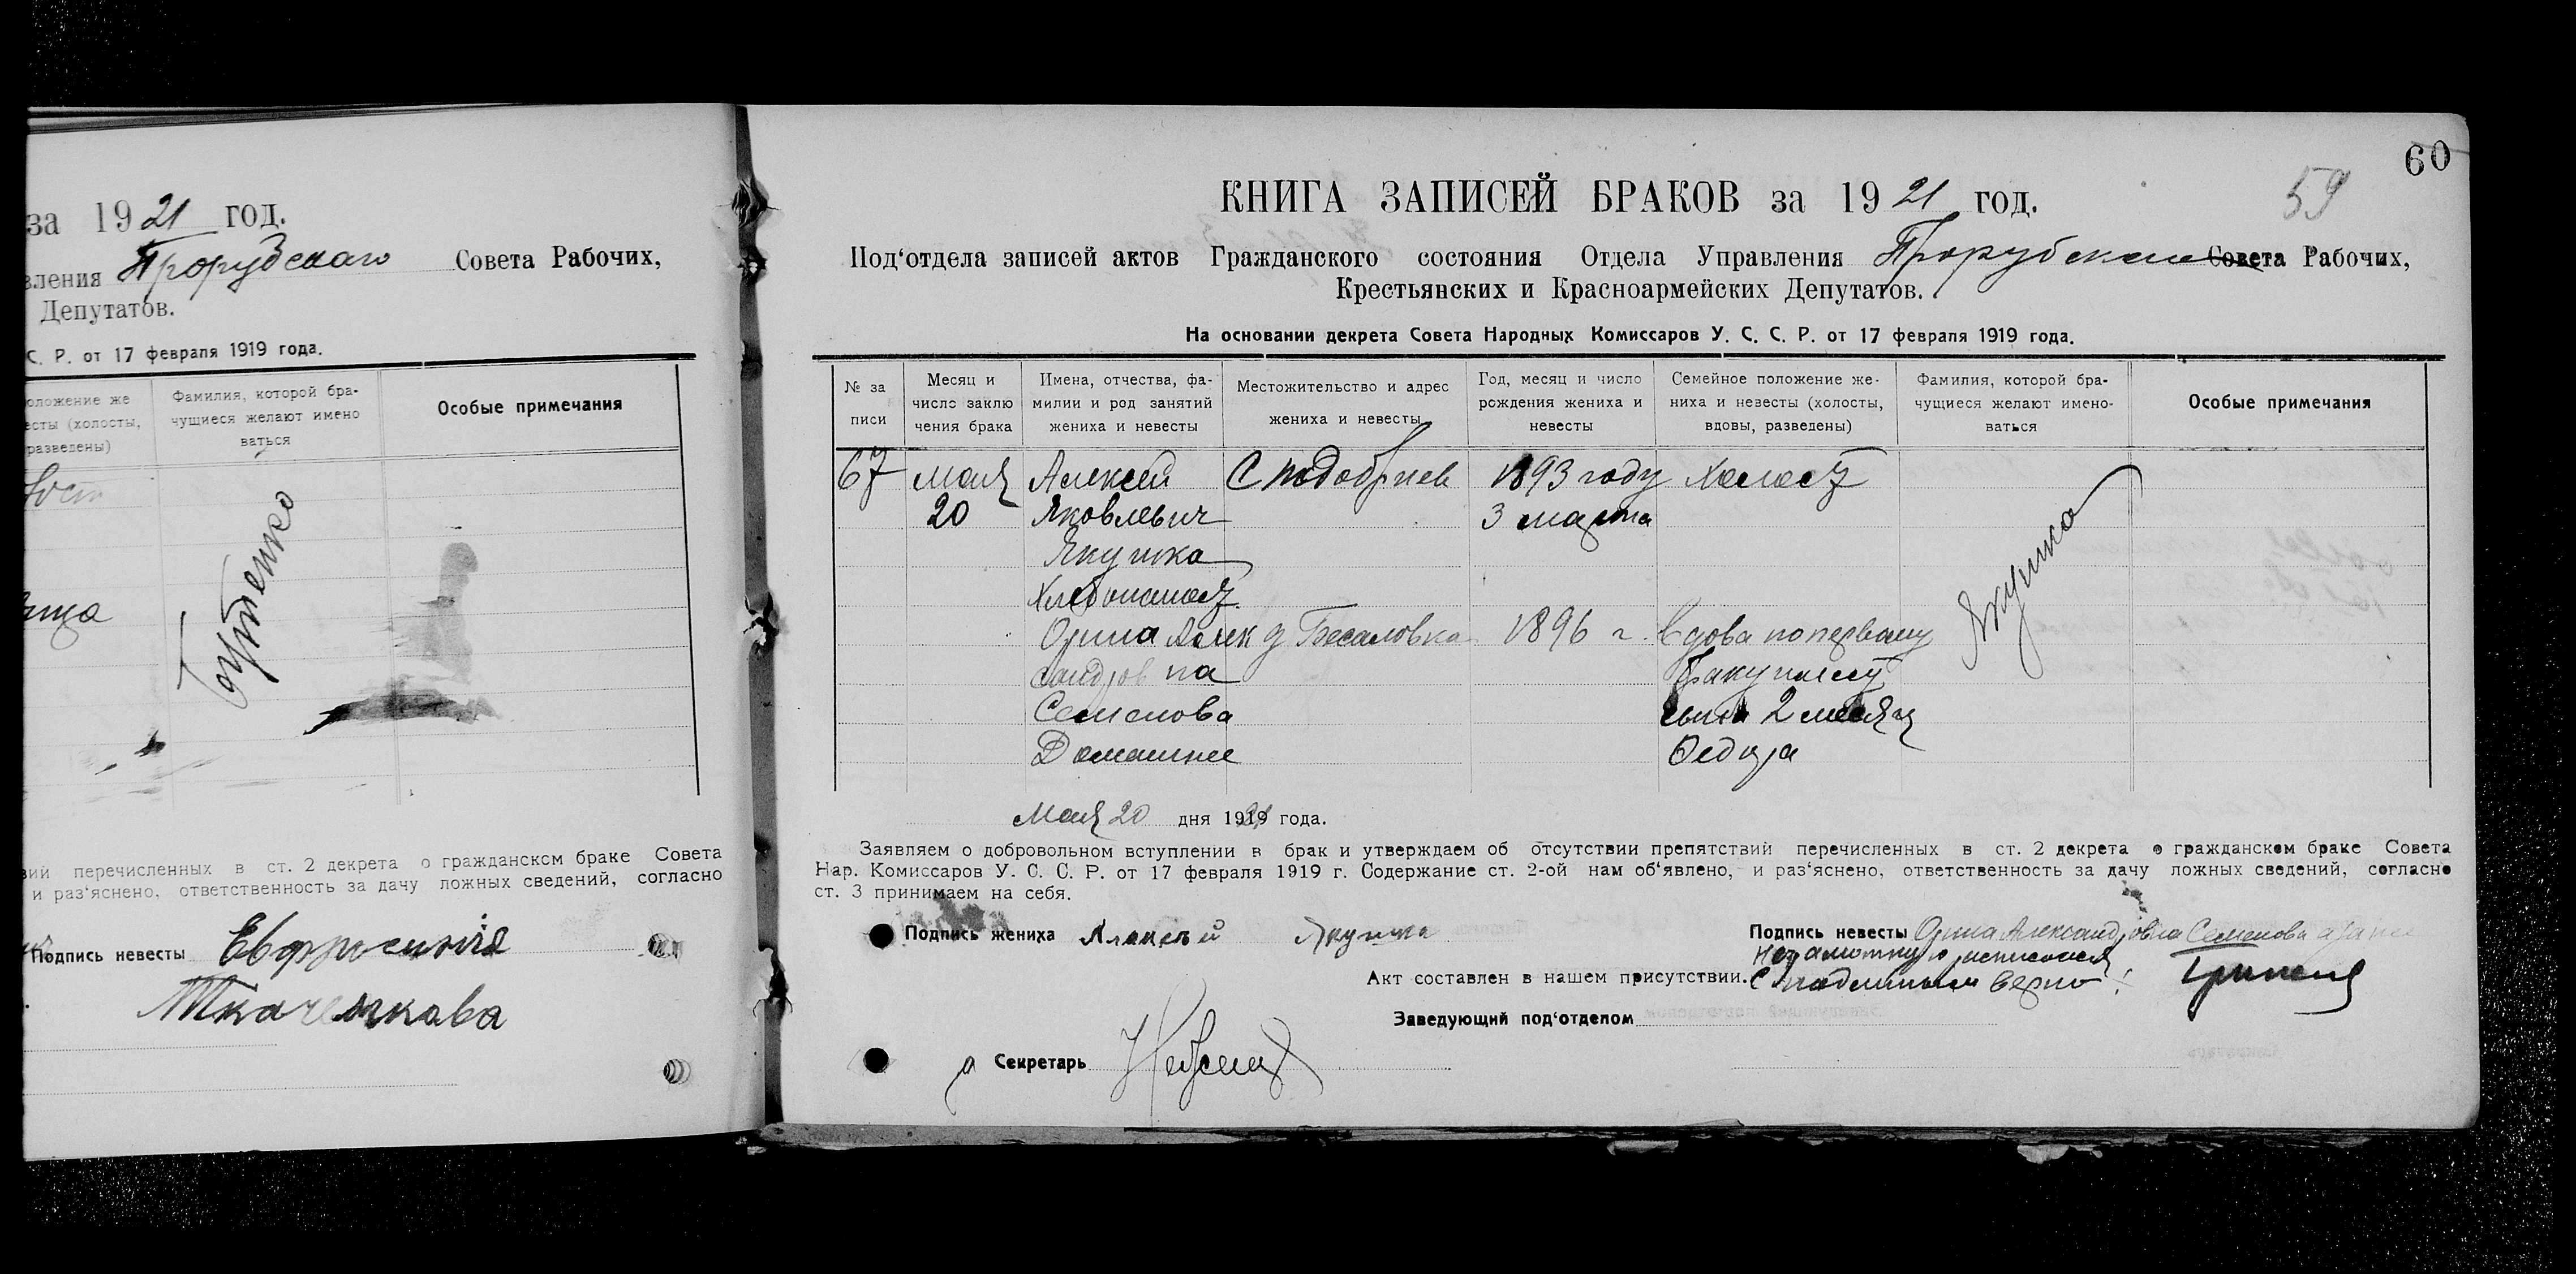 за 1921 год.
вления Прорубского Совета Рабочих,
Депутатов.
С. Р. от 17 февраля 1919 года.
оложение же
есты (холосты,
разведены)
Фамилия, которой бра-
чущиеся желают имено
ваться
Особые примечания
ий перечисленных в ст. 2 декрета о гражданском браке Совета
и раз'яснено, ответственность за дачу ложных сведений, согласно
Подпись невесты Евфросинія
60
59
КНИГА ЗАПИСЕЙ БРАКОВ за 1921 год.
Под'отдела записей актов Гражданского состояния Отдела Управления Прорубского Совета Рабочих,
Крестьянских и Красноармейских Депутатов.
На основании декрета Совета Народных Комиссаров У. С. С. Р. от 17 февраля 1919 года.
№ за
писи
Месяц и
число заклю
чения брака
Имена, отчества, фа-
милии и род занятий
жениха и невесты
Местожительство и адрес
жениха и невесты
Год, месяц и число
рождения жениха и
невесты
Семейное положение же-
ниха и невесты (холосты,
вдовы, разведены)
Фамилия, которой бра-
чущиеся желают имено-
ваться
Особые примечания
67 мая Алексей С 1893 году Холост
20 Яковлевич 3 марта
Якушка
Хлебопашест
Орина Алек д 1896 г. Вдова по первому
сандровна браку имеет
Семенова сына 2 месяц
Домашнее Федора
Якушка
Мая 20 дня 1921 года.
Заявляем о добровольном вступлении в брак и утверждаем об отсутствии препятствий перечисленных в ст. 2 декрета о гражданском браке Совета
Нар. Комиссаров У. С. С. Р. от 17 февраля 1919 г. Содержание ст. 2-ой нам об'явлено, и раз'яснено, ответственность за дачу ложных сведений, согласно
ст. 3 принимаем на себя.
Подпись жениха Алексей Якушка
Подпись невесты Орина Александровна Семенова
Акт составлен в нашем присутствии. С подлинным верно:
Заведующий под'отделом
Секретарь